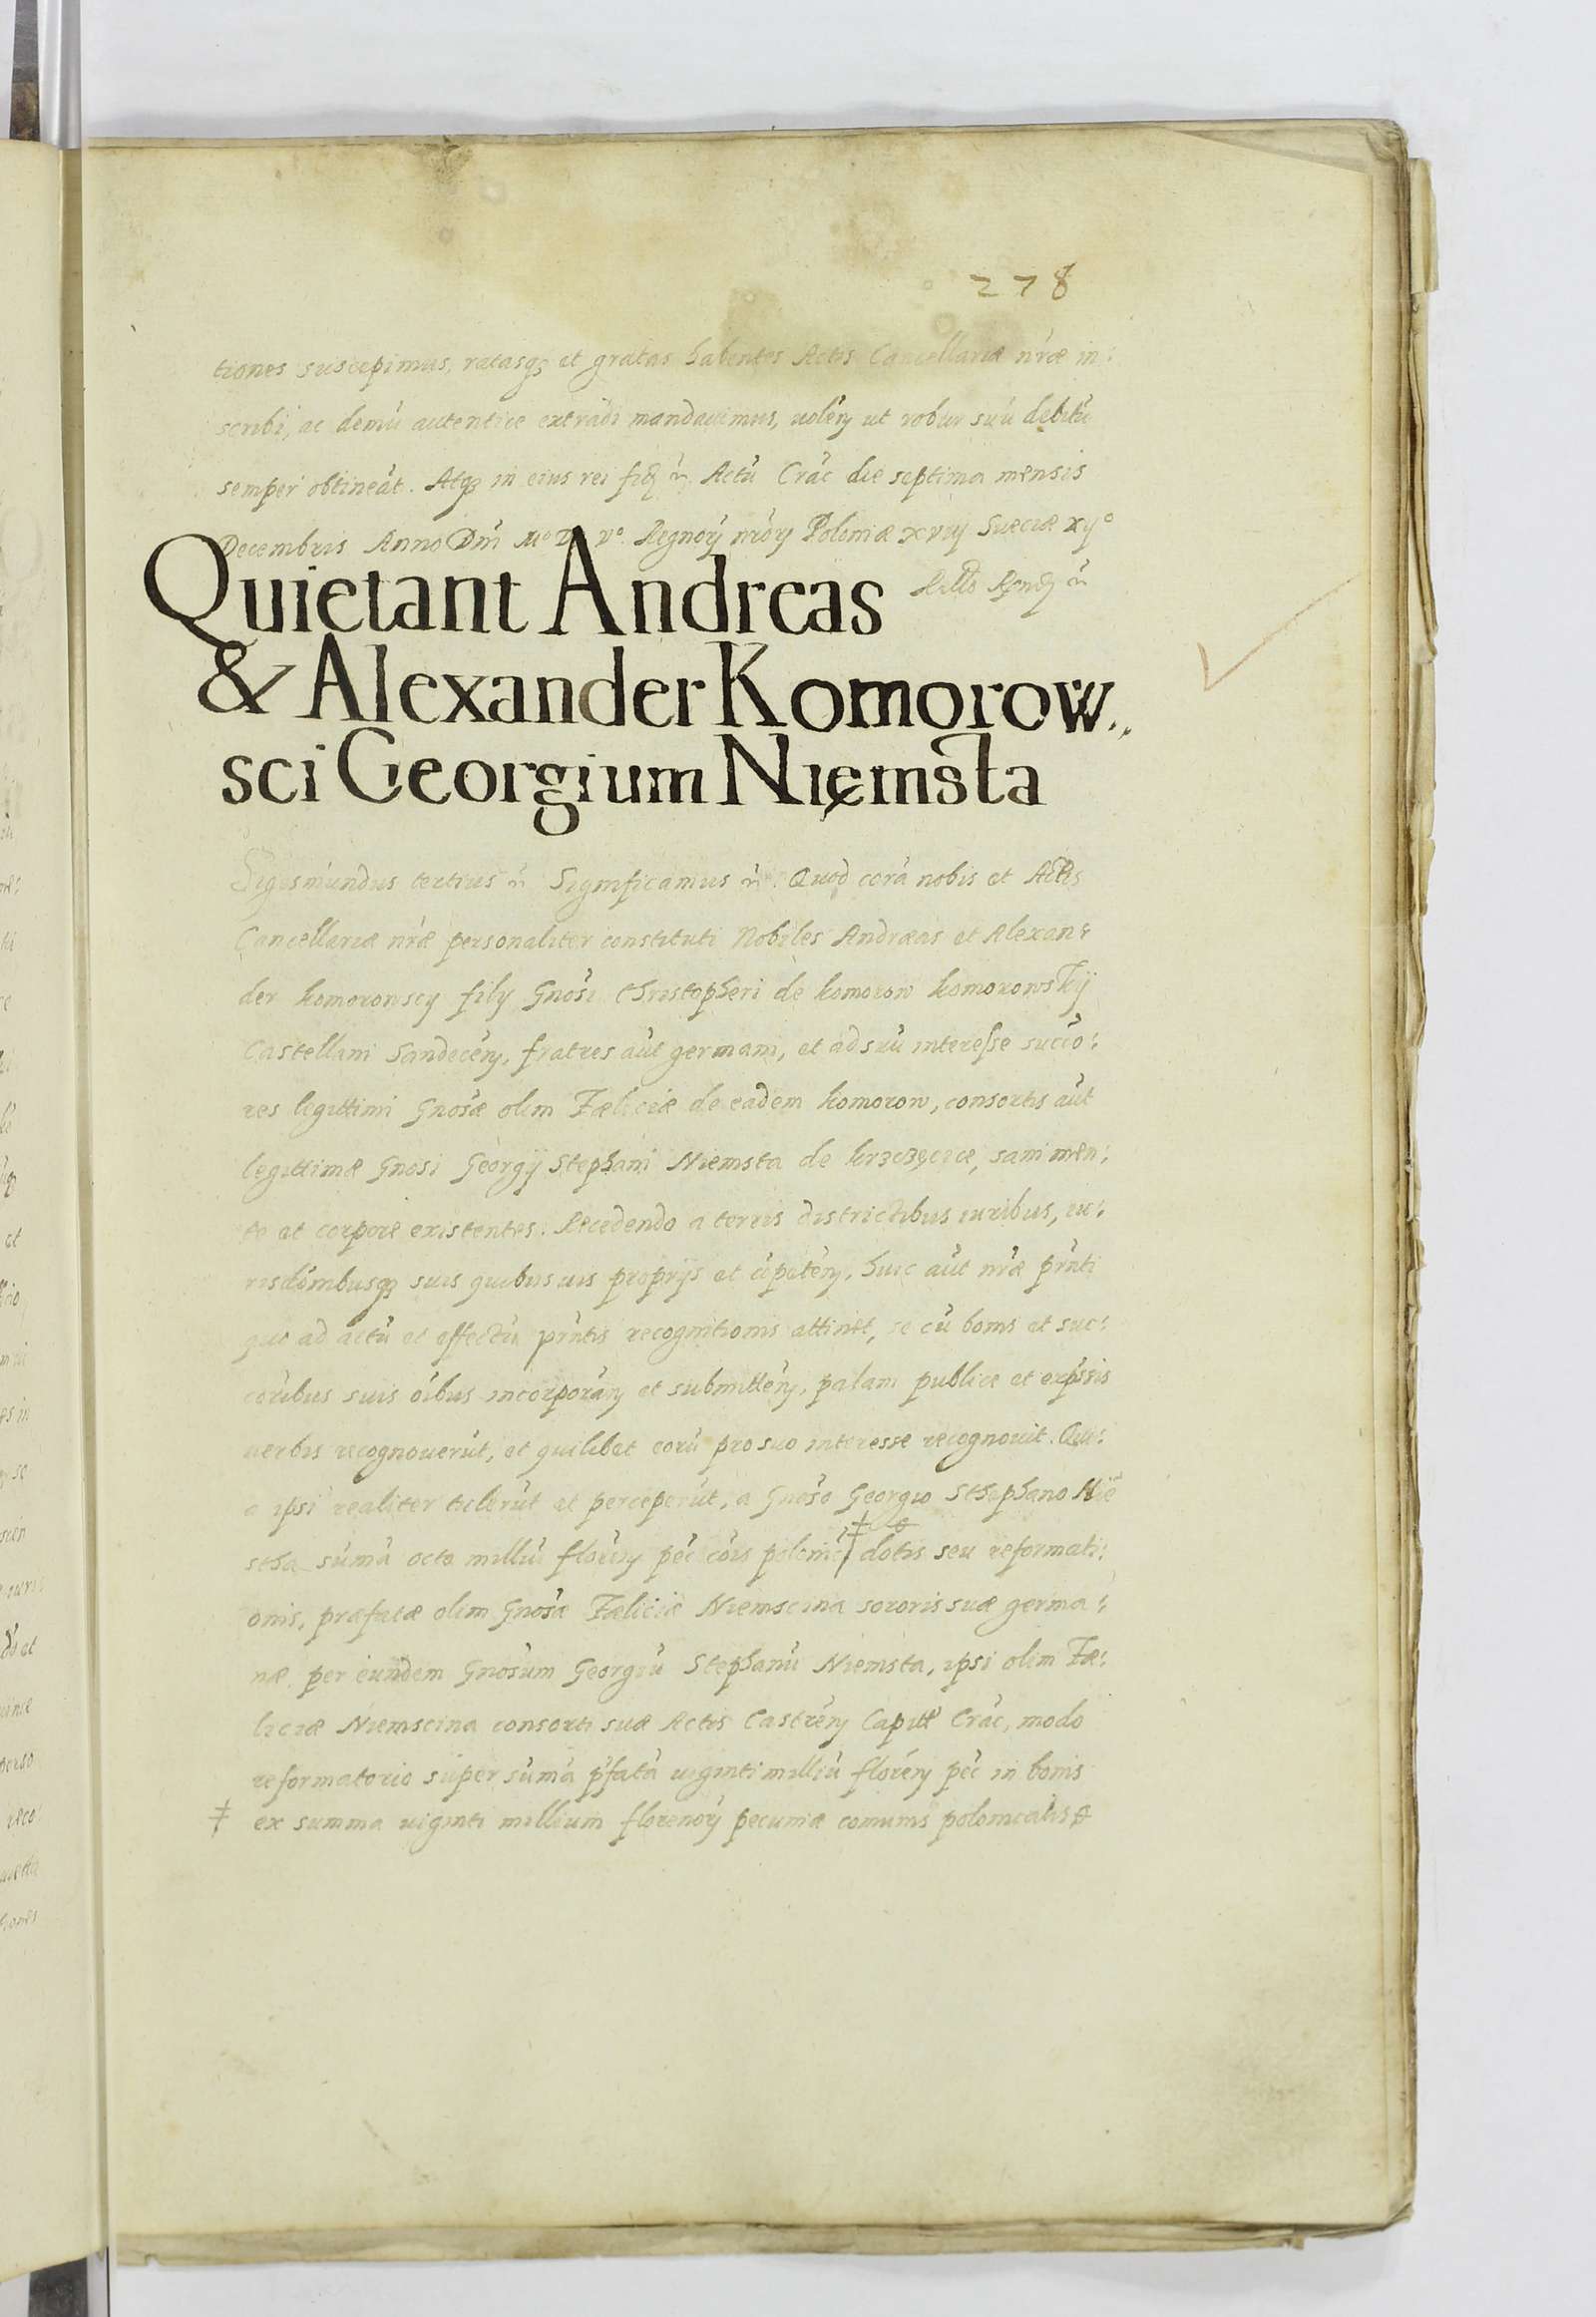 278
tiones suscepimus, ratasq3 et gratas habentes Actis Cancellariæ nr̃æ in:
scribi, ac demũ autentice extradi mandauimus, uolen̄ ut robur suũ debitũ
semper obtineãt. Atq3 in eius rei fid Actũ Crac̃ die septima mensis
Decembris Anno Dñi Regnorꝝ nr̃orꝝ Poloniæ xviij Sueciæ xijº
Quietant Andreas
& Alexander Komorow..
sci Georgium Niemsta
Sigismundus tertius Significamus Quod corã nobis et Actis
Cancellariæ nr̃æ personaliter constituti Nobiles Andræas et Alexan:
der Komorowscy filij Gnosi Christopheri de Komorow Komorowskij
Castellani Sandecen̄, fratres aũt germani, et ad suũ interesse succo:
res legittimi Gnosæ olim Fæliciæ de eadem Komorow, consortis aũt
legittimæ Gnosi Georgij Stephani Niemsta de Krzczęcice, sani men:
te et corpore existentes. Recedendo a terris districtibus iuribus, iu:
risdõnibusq3 suis quibusuis proprijs et cõpeten̄, huic aũt nr̃æ prñti
quo ad actũ et effectũ prñtis recognitionis attinet, se cũ bonis et suc:
coribus suis oĩbus incorporan̄ et submitten̄, palam publice et exp̃ssis
uerbis recognouerũt, et quilibet eorũ pro suo interesse recognouit. Qui:
a ipsi realiter tulerũt et perceperũt, a Gnoso Georgio Sthephano Niẽ
stha sũmã octo milliũ floren̄ pec̃ cõis polonic̃ ‡ dotis seu reformati:
onis, præfatæ olim Gnosæ Fæliciæ Niemscina sororis suæ germa:
næ per eundem Gnosum Georgiũ Stephanũ Niemsta, ipsi olim Fæ:
liciæ Niemscina consorti suæ Actis Castren̄ Capitt Crac̃, modo
reformatorio super sũmã p̃fatã uiginti milliũ floren̄ pec̃ in bonis
‡ ex summa uiginti millium florenorꝝ pecuniæ comunis polonicalis